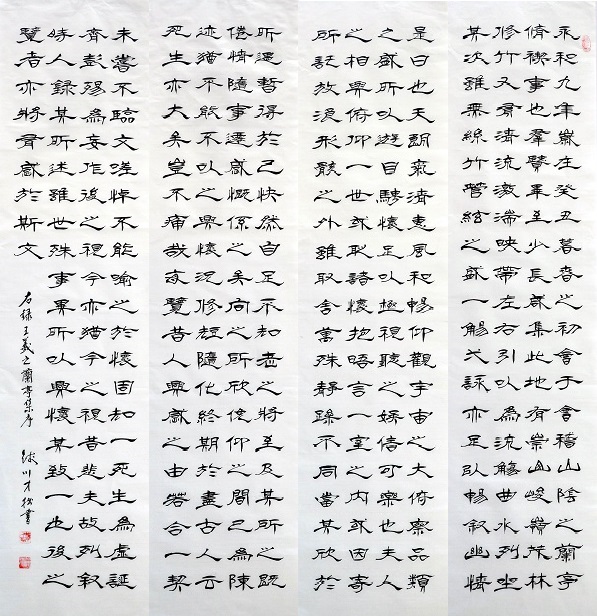 永和九年歲在癸丑暮春之初會于會稽山陰之蘭亭
脩禊事也羣賢畢至少長咸集此地有崇山峻嶺茂林
修竹又有清流激湍映帶左右引以為流觴曲水列坐
其次雖無絲竹管絃之盛一觴一詠亦足以暢敘幽情
是日也天朗氣清惠風和暢仰觀宇宙之大俯察品類
之盛所以遊目騁懷足以極視聽之娛信可樂也夫人
之相與俯仰一世或取諸懷抱晤言一室之內或因寄
所託放浪形骸之外雖取舍萬殊靜躁不同當其欣於
所遇暫得於己快然自足不知老之將至及其所之既
倦情隨事遷感慨係之矣向之所欣俛仰之間已為陳
迹猶不能不以之興懷況修短隨化終期於盡古人云
死生亦大矣豈不痛哉每覽昔人興感之由若合一契
未嘗不臨文嗟悼不能喻之於懷固知一死生為虛誕
齊彭殤為妄作後之視今亦猶今之視昔悲夫故列敘
時人錄其所述雖世殊事異所以興懷其致一也後之
覽者亦將有感於斯文
右錄王羲之蘭亭集序